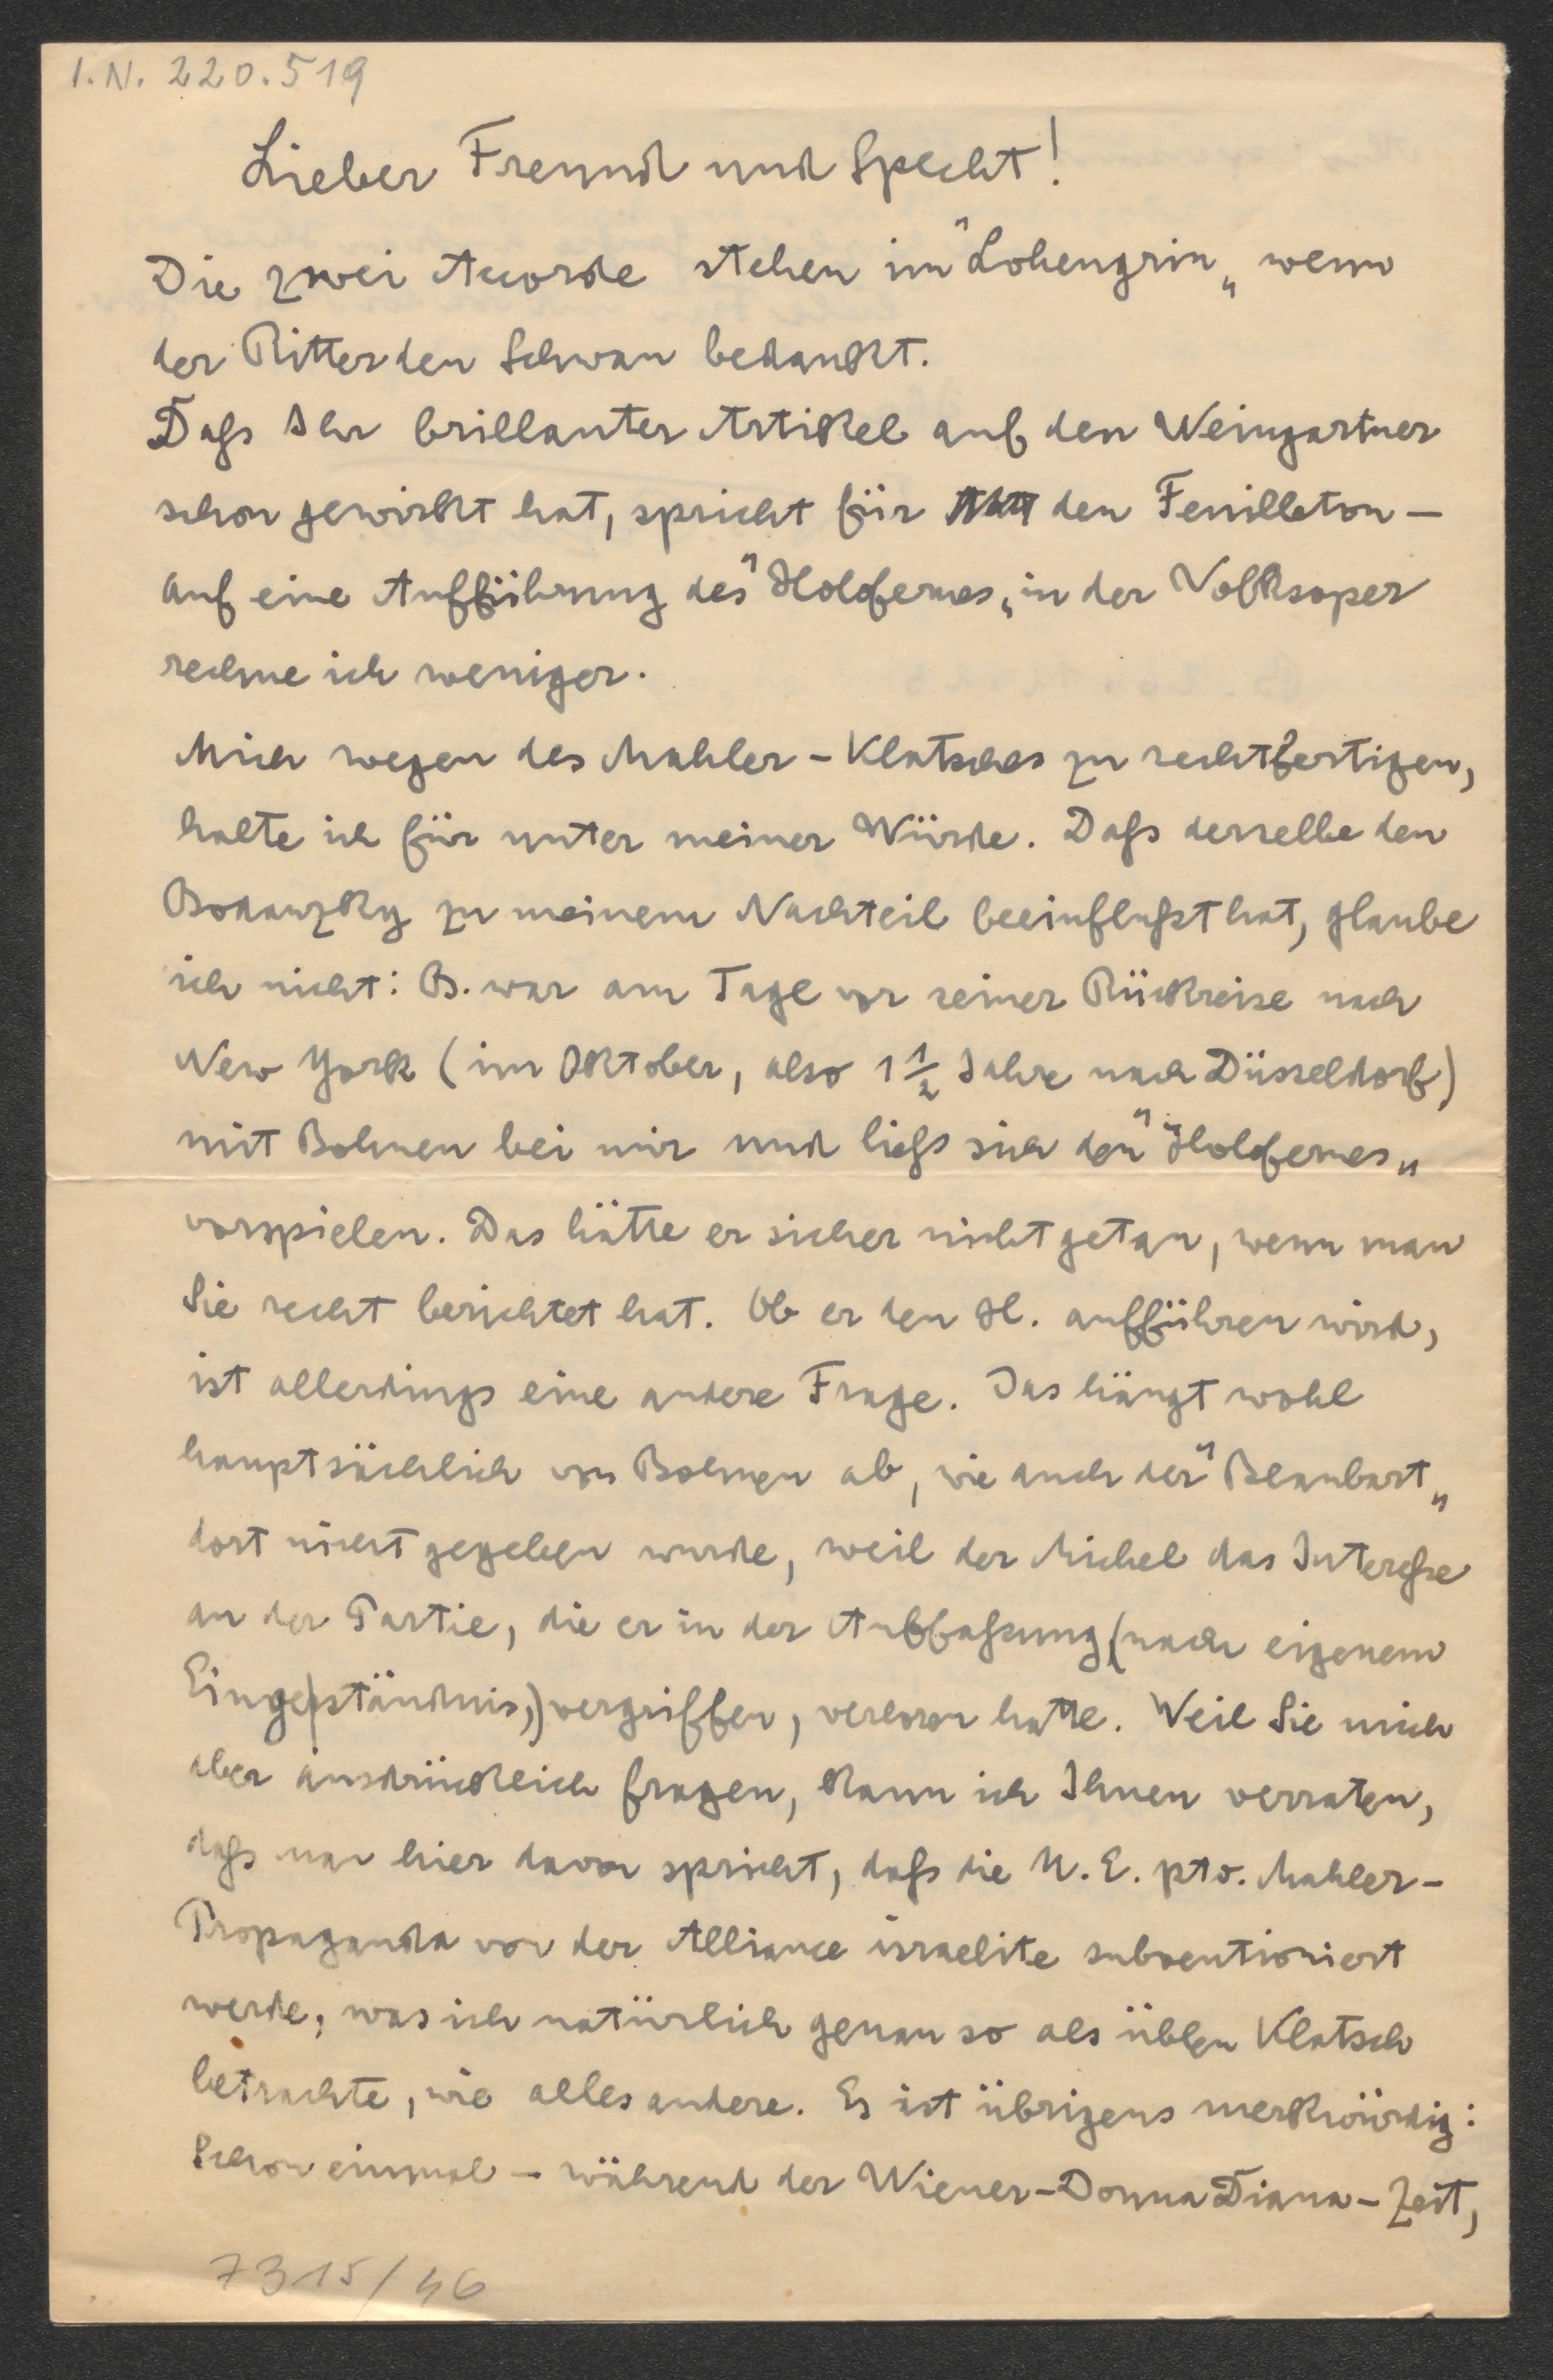 I.N. 220.519
Lieber Freund und Specht!
Die zwei Accorde stehen im "Lohengrin„ wenn
der Ritter den Schwan bedankt.
Dafs Ihr brillanter Artikel auf den Weingartner
schon gewirkt hat, spricht für den Feuilleton –
auf eine Aufführung des "Holofernes„ in der Volksoper
rechne ich weniger.
Mich wegen des Mahler-Klatsches zu rechtfertigen,
halte ich für unter meiner Würde. Dafs derselbe den
Bodanzky zu meinem Nachteil beeinflufst hat, glaube
ich nicht: B. war am Tage vor seiner Rückreise nach
New York (im Oktober, also 1 1/2 Jahre nach Düsseldorf)
mit Bohnen bei mir und liefs sich den "Holofernes„
vorspielen. Das hätte er sicher nicht getan, wenn man
Sie recht berichtet hat. Ob er den H. aufführen wird,
ist allerdings eine andere Frage. Das hängt wohl
hauptsächlich von Bohnen ab, wie auch der "Blaubart„
dort nicht gegeben wurde, weil der Michel das Interefse
an der Partie, die er in der Auffafsung (nach eigenem
Eingeständnis,) vergriffen, verloren hatte. Weil Sie mich
aber ausdrücklich fragen, kann ich Ihnen verraten,
dafs man hier davon spricht, dafs die U. E. pto. Mahler-
Propaganda von der Alliance israelite subventioniert
werde, was ich natürlich genau so als üblen Klatsch
betrachte, wie alles andere. Es ist übrigens merkwürdig:
Schon einmal – während der Wiener-Donna Diana-Zeit,
7315/46